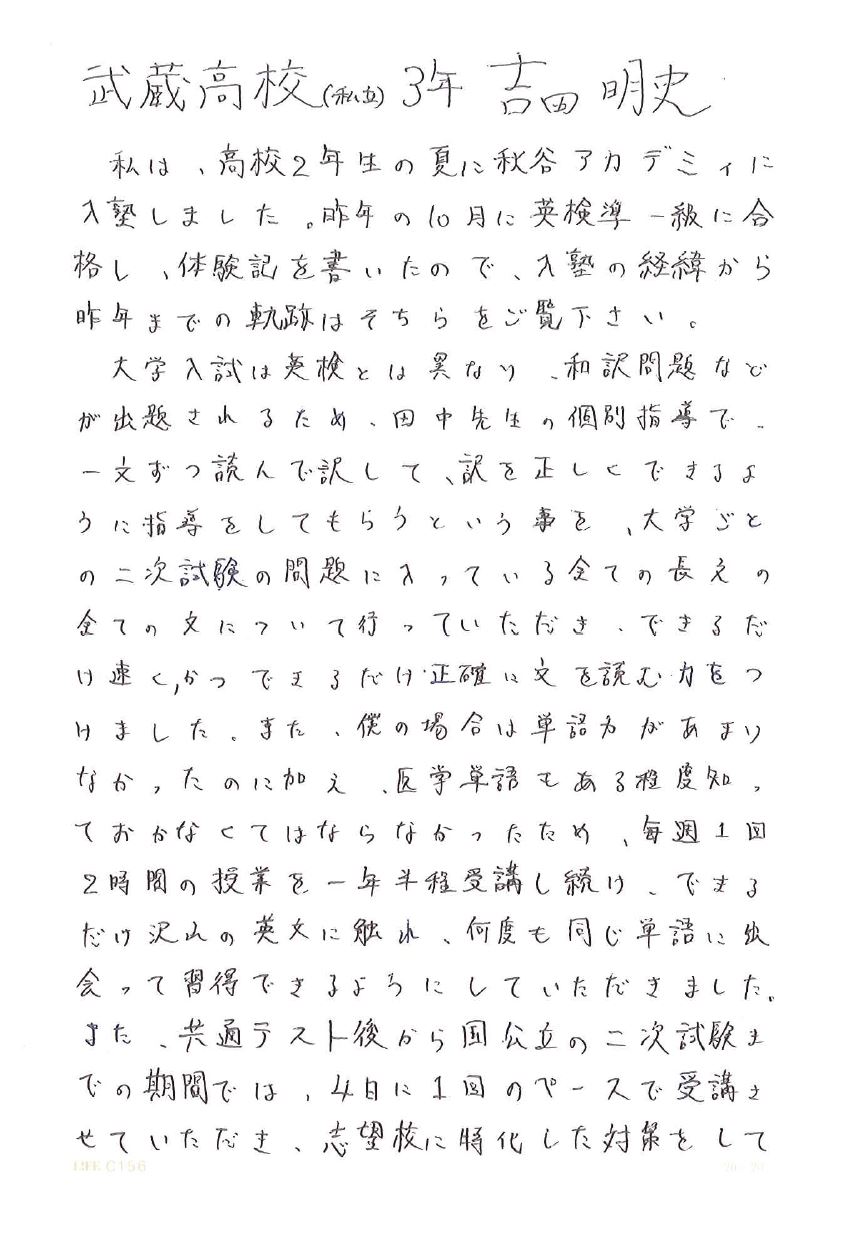 武蔵高校(私立) 3年 吉田明史
私は、高校2年生の夏に秋谷アカデミィに
入塾しました。昨年の10月に英検準一級に合
格し、体験記を書いたので、入塾の経緯から
昨年までの軌跡はそちらをご覧下さい。
大学入試は英検とは異なり、和訳問題など
が出題されるため、田中先生の個別指導で、
一文ずつ読んで訳して、訳を正しくできるよ
うに指導をしてもらうという事を、大学ごと
の二次試験の問題に入っている全ての長文の
全ての文について行っていただき、できるだ
け速く,かつできるだけ正確に文を読む力をつ
けました。また、僕の場合は単語力があまり
なかったのに加え、医学単語もある程度知っ
ておかなくてはならなかったため、毎週1回
2時間の授業を一年半程受講し続け、できる
だけ沢山の英文に触れ、何度も同じ単語に出
会って習得できるようにしていただきました。
また、共通テスト後から国公立の二次試験ま
での期間では、4日に1回のペースで受講さ
せていただき、志望校に特化した対策をして
LIFE C156
20×20